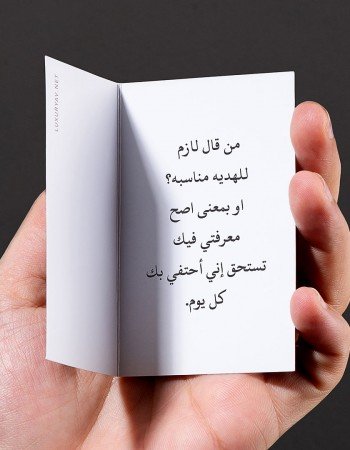 من قال لازم
للهديه مناسبه؟
او بمعنى اصح
معرفتي فيك
تستحق إني أحتفي بك
كل يوم.
LUXURYAY.NET